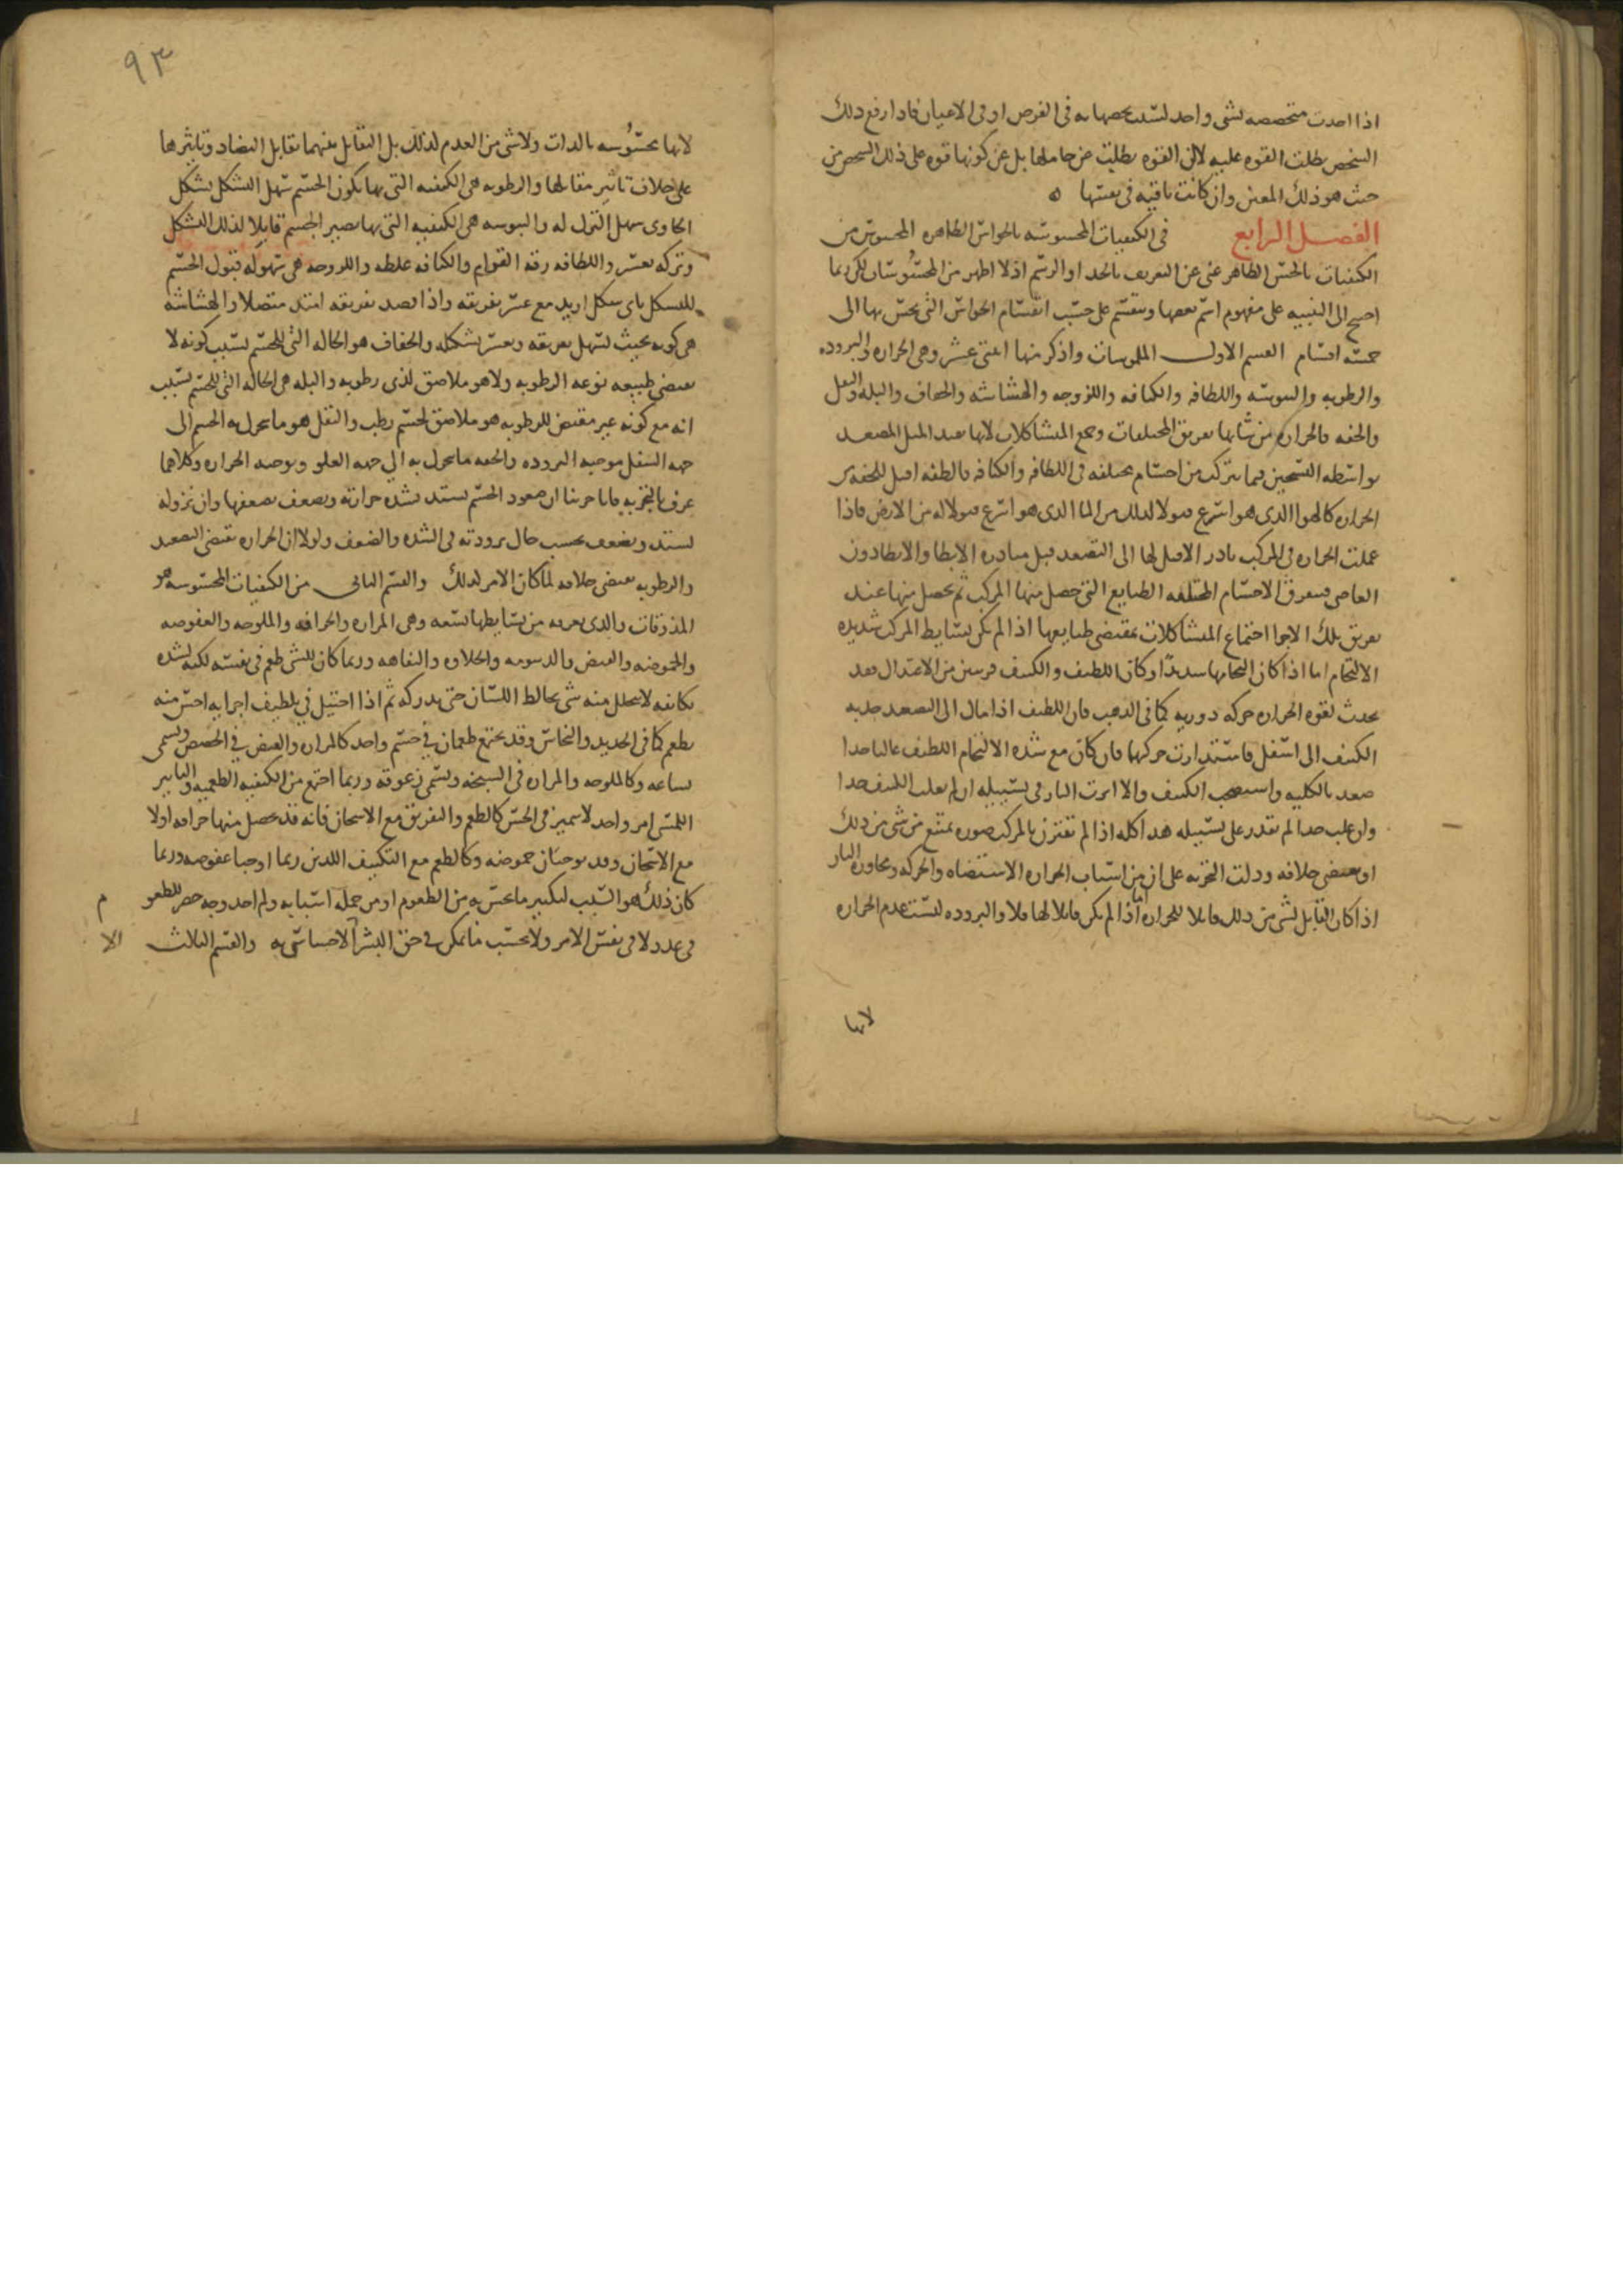 اذا احدت متخصصه بشى واحد لسبب تخصصها به فى الفرض او فى الاعيان فاذا ارفع ذلك
الشخص بطلت القوه عليه لا لان القوه بطلت عن حاملها بل عن كونها قوه على ذلك الشخص من
حيث هو ذلك المعين وان كانت باقيه فى نفسها ه
الفصل الرابع فى الكيفيات المحسوسه بالحواس الظاهره المحسوس من
الكيفيات بالحس الظاهر غنى عن التعريف بالحد او الرسم اذ لا اظهر من المحسوسات لكن ربما
احتيج الى التنبيه على مفهوم اسم بعضها وينقسم على حسب انقسام الحواس التى يحس بها الى
خمسه اقسام القسم الاول الملموسات واذكر منها اثنتى عشر وهى الحراره والبروده
والرطوبه واليبوسه واللطافه والكثافه واللزوجه والهشاشه والجفاف والبله والثقل
والخفه فالحراره من شانها تفريق المختلفات وجمع المتشاكلات لانها تفيد الميل المصعد
بواسطه التسخين فما يتركب من اجسام مختلفه فى اللطافه والكثافه فالطفه اقبل للخفه من
الحراره كالهوا الذى هو اسرع قبولا لذلك من الما الذى هو اسرع قبولا له من الارض فاذا
عملت الحراره فى المركب بادر الاقبل لها الى التصعد قبل مبادره الابطا والابطا دون
العاصى فيتفرق الاجسام المختلفه الطبايع التى حصل منها المركب ثم يحصل منها عند
تفريق تلك الاجزا اجتماع المتشاكلات بمقتضى طبايعها اذا لم يكن بسايط المركب شديده
الالتحام اما اذا كان التحامها شديدا وكان اللطيف والكثيف قريبين من الاعتدال فقد
يحدث لقوه الحراره حركه دوريه كما فى الذهب فان اللطيف اذا مال الى التصعد جذبه
الكثيف الى اسفل فاستدارت حركتها فان كان مع شده الالتحام اللطيف غالبا جدا
صعد بالكليه واستصحب الكثيف والا اثرت النار فى تسييله ان لم يغلب الكثيف جدا
وان غلب جدا لم تقدر على تسييله هذا كله اذا لم تقترن بالمركب صوره تمنع من شى من ذلك
او تقتضى خلافه ودلت التجربه على ان من اسباب الحراره الاستضاه والحركه ومجاوره النار
اذا كان القابل لشى من ذلك قابلا للحراره اما اذا لم يكن قابلا لها فلا والبروده ليست عدم الحراره
لانها
٩٣
لانها محسوسه بالذات ولا شى من العدم كذلك بل التقابل بينهما تقابل التضاد وتاثيرها
على خلاف تاثير مقابلها والرطوبه هى الكيفيه التى بها يكون الجسم سهل التشكل بشكل
الحاوى سهل الترك له واليبوسه هى الكيفيه التى بها يصير الجسم قابلا لذلك التشكل
وتركه بعسر واللطافه رقه القوام والكثافه غلظه واللزوجه هى سهوله قبول الجسم
للتشكل باى شكل اريد مع عسر تفريقه واذا قصد تفريقه امتد متصلا والهشاشه
هى كونه بحيث يسهل تفريقه ويعسر تشكله والجفاف هو الحاله التى للجسم بسبب كونه لا
تقتضى طبيعه نوعه الرطوبه ولا هو ملاصق لذى رطوبه والبله هى الحاله التى للجسم بسبب
انه مع كونه غير مقتض للرطوبه هو ملاصق لجسم رطب والثقل هو ما يتحرك به الجسم الى
جهه السفل موجبه البروده والخفه ما يتحرك به الى جهه العلو وتوجبه الحراره وكلاهما
عرف بالتجربه فانا جربنا ان صعود الجسم يشتد بشده حرارته ويضعف بضعفها وان نزوله
يشتد ويضعف بحسب حال برودته فى الشده والضعف ولولا ان الحراره تقتضى التصعد
والرطوبه تقتضى خلافه لما كان الامر كذلك والقسم الثانى من الكيفيات المحسوسه هو
المذوقات والذى نعرفه من بسايطها تسعه وهى المراره والحرافه والملوحه والعفوصه
والحموضه والقبض والدسومه والحلاوه والتفاهه وربما كان للشى طعم فى نفسه لكنه لشده
تكاثفه لا يتحلل منه شى يخالط اللسان حتى يدركه ثم اذا احتيل فى تلطيف اجزايه احس منه
بطعم كما فى الحديد والنحاس وقد يجتمع طعمان فى جسم واحد كالمراره والقبض فى الحضض ويسمى
بشاعه وكالملوحه والمراره فى السبخه ويسمى زعوقه وربما اجتمع من الكيفيه الطعميه والتاثير
اللمسى امر واحد لا يتميز فى الحس كالطعم والتفريق مع الاسخان فانه قد يحصل منها حرافه او لا
مع الاسخان وقد يوجبان حموضه وكالطعم مع التكثيف اللذين ربما اوجبا عفوصه وربما
كان ذلك هو السبب لتكثير ما يحس به من الطعوم او من جمله اسبابه ولم اجد وجه حصر للطعوم
فى عدد لا فى نفس الامر ولا بحسب ما يمكن فى حق البشر الاحساس به والقسم الثالث الا